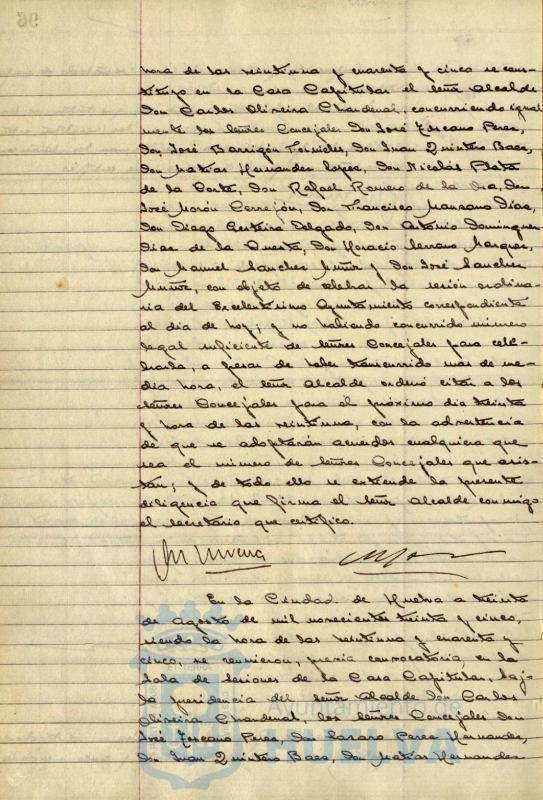 96
hora de las veintiuna y cuarenta y cinco se cons-
tituyó en la Casa Capitular el señor Alcalde
Don Carlos Oliveira Chardenal, concurriendo igual
mente los señores Concejales Don José Toscano Perez,
Don José Barrigón Fornieles, Don Juan Quintero Baez,
Don Matías Hernandez Lopez, Don Nicolás Plata
de la Corte, Don Rafael Romero de la Osa, Don
José Morón Cerrejón, Don Francisco Manzano Diaz,
Don Diego Delgado, Don Antonio Dominguez
Diaz de la Cuesta, Don Horacio Serrano Marquez,
Don Manuel Sanchez Muñiz y Don José Sanchez
Muñiz, con objeto de celebrar la sesión ordina-
ria del Excelentísimo Ayuntamiento correspondiente
al dia de hoy; y no habiendo concurrido número
legal suficiente de señores Concejales para cele-
brarla, a pesar de haber transcurrido mas de me-
dia hora, el señor Alcalde ordenó citar a los
señores Concejales para el próximo dia treinta
y hora de las veintiuna, con la advertencia
de que se adoptarán acuerdos cualquiera que
sea el número de señores Concejales que asis-
tan; y de todo ello se extiende la presente
diligencia que firma el señor Alcalde conmigo
el secretario que certifico.
En la Ciudad de Huelva a treinta
de Agosto de mil novecientos treinta y cinco,
siendo la hora de las veintiuna y cuarenta y
cinco, se reunieron, previa convocatoria, en la
sala de sesiones de la Casa Capitular, bajo
la presidencia del señor Alcalde Don Carlos
Oliveira Chardenal, los señores Concejales Don
José Toscano Perez, Don Lazaro Perez Hernandez,
Don Juan Quintero Baez, Don Matías Hernandez
Ayuntamiento de
HUELVA